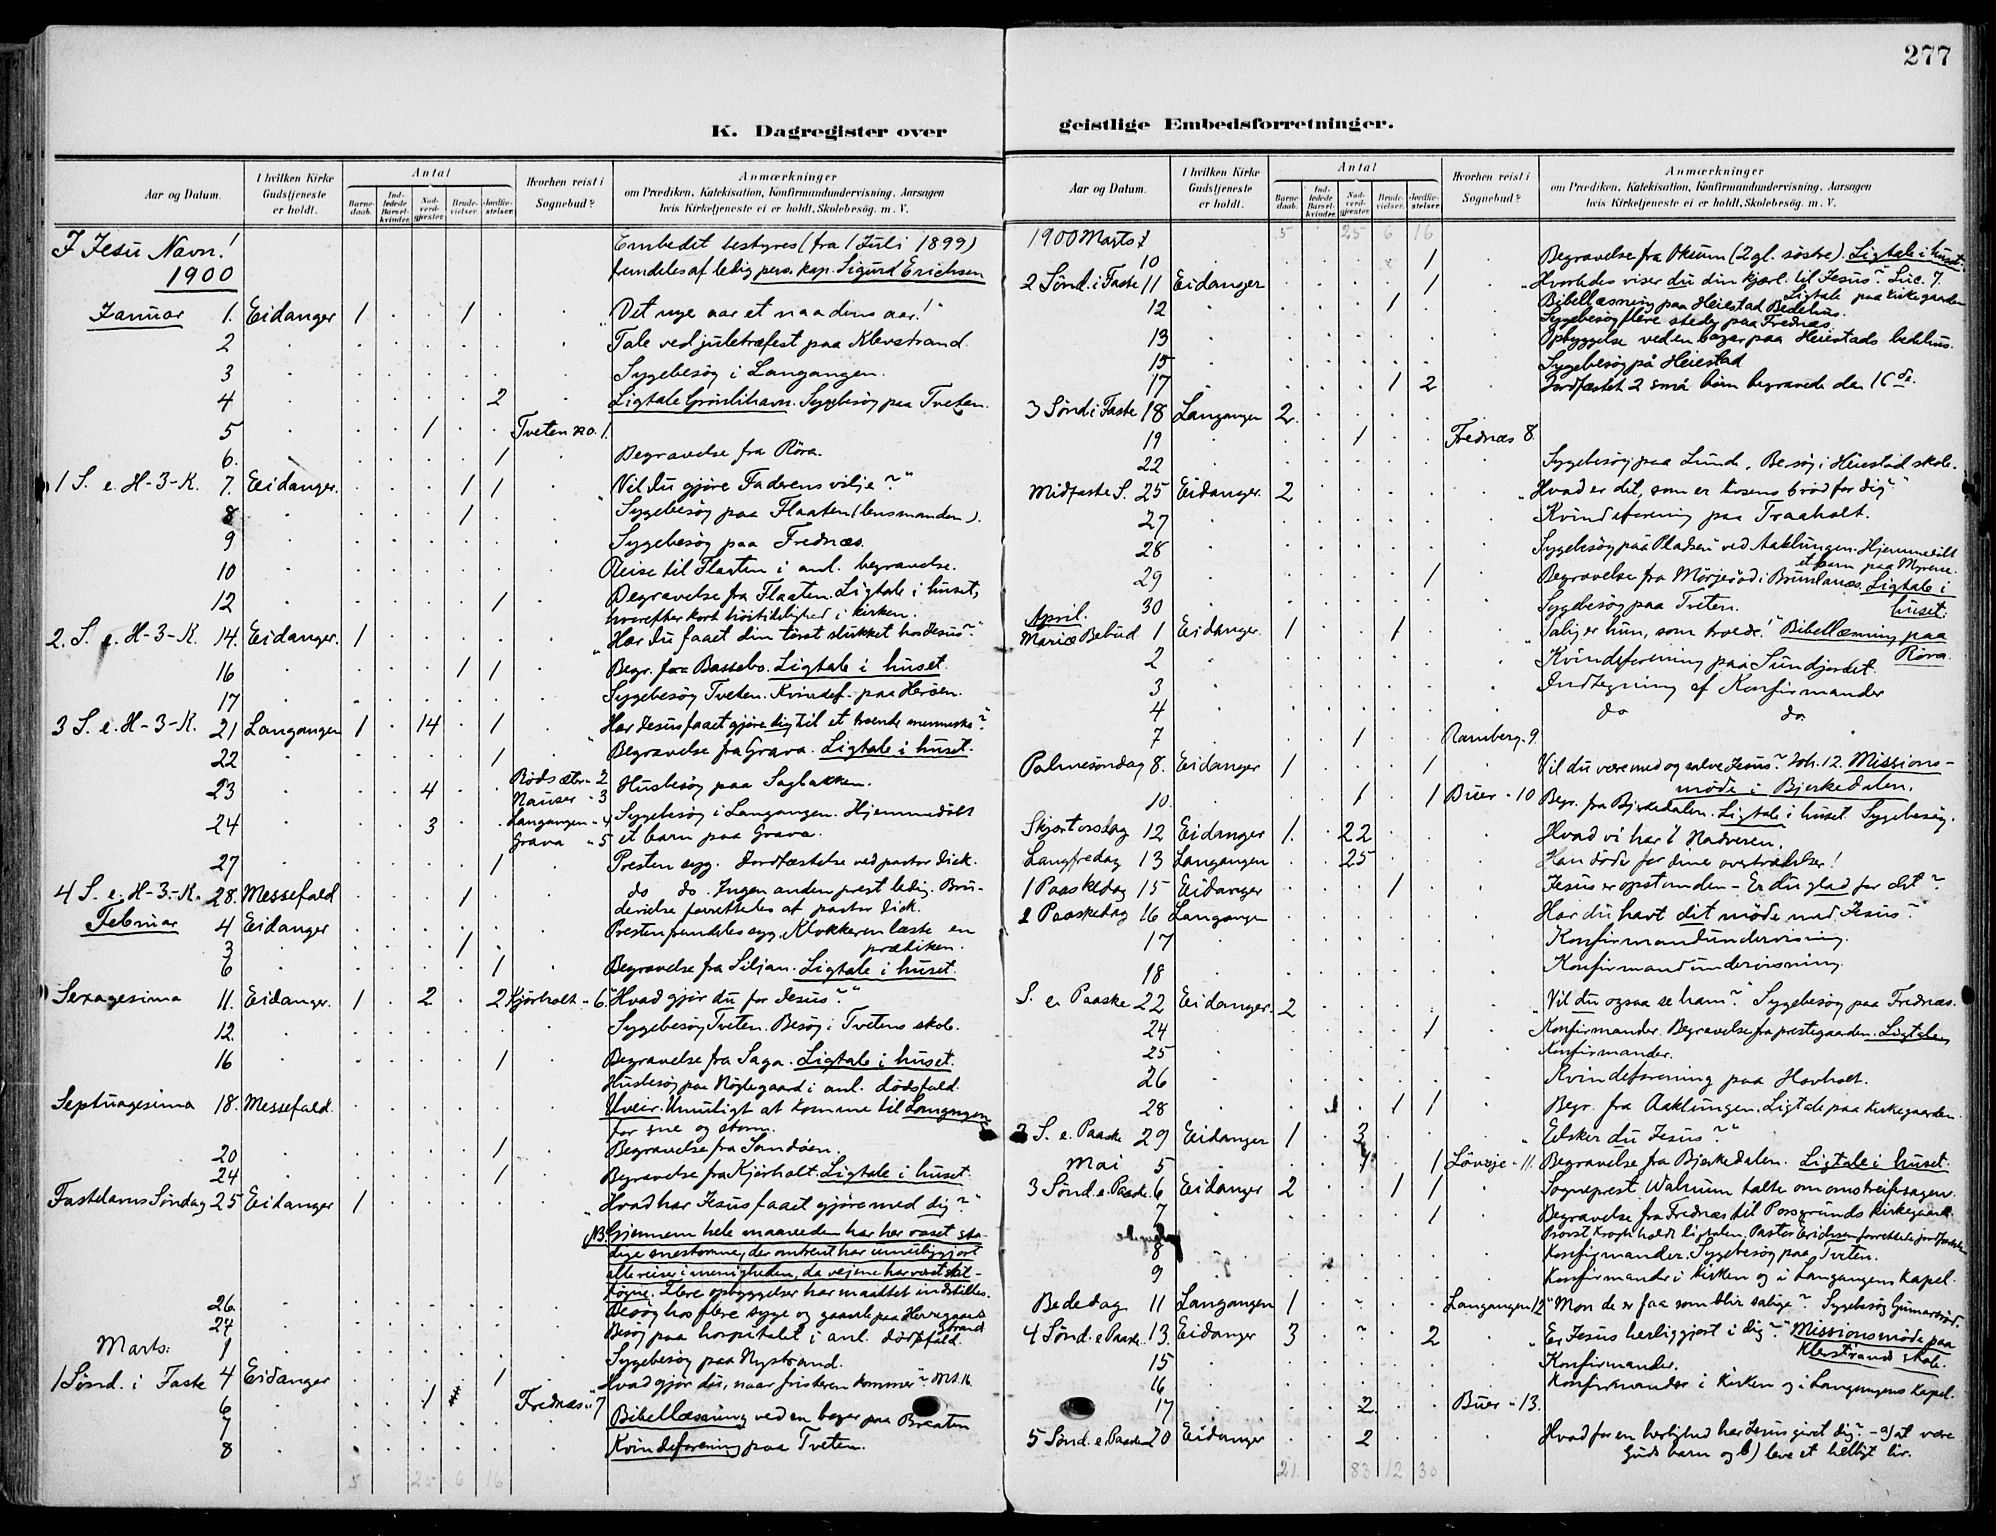 277
K. Dagregister over
Aar og Datum.
I hvilken Kirke Gudstjeneste er holdt.
Antal
Barnedaab.
Indledede Barselkvinder.
Nadverdgjester.
Brudevielser.
Jordfæstelser.
Hvorhen reist i Sognebud?
Anmærkninger
om Prædiken, Katekisation, Konfirmandundervisning, Aarsagen
hvis Kirketjeneste ei er holdt, Skolebesøg. m. V.
I Jesu Navn! Embedet bestyres (fra 1 Juli 1899)
1900 fremdeles af ledig pers. kap. Sigurd Erichsen
Januar 1. Eidanger 1 . . 1 . . "Det nye aar et naadens aar!"
2 Tale ved juletræfest paa Klevstrand.
3 Sygebesøg i Langangen.
4 2 Ligtale Grönlihavn. Sygebesøg paa Tveten.
5 1 Tveten no. 1.
6. 1 Begravelse fra Röra.
1 S. e. H-3-K. 7. Eidanger. 1 1 "Vil du gjöre Faderens vilje?"
8 1 Sygebesøg paa Flaaten (lensmanden).
9 Sygebesøg paa Frednæs.
10 Reise til Flaaten i anl. begravelse.
12 1 Begravelse fra Flaaten. Ligtale i huset,
hvorefter kort höitidelighed i kirken.
2. S. e. H-3-K. 14. Eidanger. 1 "Har du faaet din törst slukket hos Jesus?"
16 1 1 Begr. fra Bassebo. Ligtale i huset.
17 Sygebesøg Tveten. Kvindef. paa Heröen.
3 S. e. H-3-K. 21 Langangen 1 14 1 "Har Jesus faaet gjöre dig til et troende menneske?"
22 1 Begravelse fra Grava. Ligtale i huset.
23 4 Rødsæter - 2 Husbesøg paa Sagbakken.
Nauser - 3
24 3 Langangen - 4 Sygebesøg i Langangen. Hjemmedöbt
Grava " 5 et barn paa Grava.
27 1 Presten syg. Jordfæstelse ved pastor Dick.
4 S. e. H-3-K. 28. Messefald 1 do do. Ingen anden prest ledig. Bru-
devielse forrettedes af pastor Dick.
Februar 4 Eidanger Presten fremdeles syg. Klokkeren læste en
3 1 prædiken.
6 1 Begravelse fra Siljan. Ligtale i huset.
Sexagesima 11. Eidanger. 1 2 2 Kjörholt - 6. "Hvad gjör du for Jesus?"
12. Sygebesøg Tveten. Besøg i Tvetens skole.
16 1 Begravelse fra Saga. Ligtale i huset.
Husbesøg paa Nøglegaard i anl. dødsfald.
Septuagesima 18. Messefald. Uveir. Umuligt at komme til Langangen
for sne og storm.
20 1 Begravelse fra Sandøen.
24 1 Begravelse fra Kjörholt. Ligtale i huset.
Fastelavns Söndag 25 Eidanger 1 "Hvad har Jesus faaet gjöre med dig?"
NB. Gjennem hele maaneden har her raset sta-
dige snestorme, der omtrent har umuliggjort
alle reiser i menigheden, da veiene har været stil-
Flere opbyggelser har maattet indstilles.
26. Besøg hos flere syge og gamle paa Herregaards
24 Besøg paa hospitalet i anl. dödsfald. strand
Marts: 1 Sygebesøg paa Nystrand.
1 Sönd. i Faste 4 Eidanger 1 Hvad gjör du, naar fristeren kommer?
6 1 Frednæs " 7
7 Bibellæsning ved en bazar paa Braaten
8 Kvindeforening paa Tveten.
5 25 6 16
geistlige Embedsforretninger.
Aar og Datum.
I hvilken Kirke Gudstjeneste er holdt.
Antal
Barnedaab.
Indledede Barselkvinder.
Nadverdgjester.
Brudevielser.
Jordfæstelser.
Hvorhen reist i Sognebud?
Anmærkninger
om Prædiken, Katekisation, Konfirmandundervisning, Aarsagen
hvis Kirketjeneste ei er holdt, Skolebesøg. m. V.
1900 Marts: 5 25 6 16
10 1 Begravelse fra Økum (2 gl. söstre). Ligtale i huset.
2 Sönd. i Faste 11 Eidanger 1 "Hvorledes viser du din kjærl. til Jesus? Luc. 7.
Ligtale paa kirkegaarden
12 1 Bibellæsning paa Heiestad Bedehus.
Sygebesøg flere steder paa Frednæs.
13 Opbyggelse ved en bazar paa Heiestads bedehus.
15 Sygebesøg på Heiestad
17 1 2 Jordfæstet 2 små börn begravede den 16de.
3 Sönd i Faste 18 Langangen 2.
19 1 Frednæs 8.
22 Sygebesøg paa Lunde. Besøg i Heiestad skole.
Midfaste S. 25 Eidanger. 2 "Hvad er det, som er livsens bröd for dig?"
27 Kvindeforening paa Traaholt.
28 Sygebesøg paa Pladsen ved Aaklungen. Hjemmedöbt
et barn paa Myrene.
29 1 Begravelse fra Mörjeröd i Brunlanæs. Ligtale i
30 Sygebesøg paa Tveten. huset.
April.
Mariæ Bebud 1 Eidanger. 1 1 "Salig er hun, som troede!" Bibellæsning paa
2 Kvindeforening paa Sundjordet. Röra.
3 Indtegning af Konfirmander
4 do do
7 1 Ramberg - 9.
Palmesöndag 8. Eidanger 1 1 Vil du være med og salve Jesus? Joh. 12. Missions-
möde i Bjerkedalen.
10. 1 1 Buer - 10 Begr. fra Bjerkedalen. Ligtale i huset. Sygebesøg.
Skjærtorsdag 12 Eidanger 1. 22 Hvad vi har i Nadveren.
Langfredag 13 Langangen 25 Han döde for dine overtrædelser!
1 Paaskedag 15 Eidanger 1 Jesus er opstanden - Er du glad for det?
2 Paaskedag 16 Langangen Har du havt dit möde med Jesus?
17 Konfirmandundervisning.
18 Konfirmandundervisning.
S. e. Paaske 22 Eidanger. 2 "Vil du ogsaa se ham?" Sygebesøg paa Frednæs.
24 1 Konfirmander. Begravelse fra prestegaarden. Ligtalen
25 Konfirmander.
26 Kvindeforening paa Hovholt.
28 1 1 Begr. fra Aaklungen. Ligtale paa kirkegaarden.
2 S. e. Paaske 29 Eidanger 1 3 "Elsker du Jesus?"
Mai 5 1 1 Lövsje - 11. Begravelse fra Bjerkedalen. Ligtale i huset.
3 Sönd. e. Paaske. 6 Eidanger 2 1 1 Sogneprest Walnum talte om omstreifersagen.
7 1 Begravelse fra Frednæs til Porsgrunds kirkegaard.
Provst Krogh holdt ligtalen. Pastor Erichsen forrettede jordfæstelsen
8 Konfirmander. Sygebesøg paa Tveten.
9 Konfirmander i Kirken og i Langangens Kapel.
Bededag 11 Langangen 1 Langangen 12 "Mon de er faa som blir salige? Sygebesøg Gunnarsröd.
4 Sönd. e. Paaske. 13. Eidanger 3 2 "Er Jesus herliggjort i dig?" Missionsmöde paa
15 Konfirmander. Klevstrand skole.
16 Konfirmander i Kirken og i Langangens Kapel.
17 2. Buer - 13.
5 Sönd. e. Paaske 20 Eidanger 2 Hvad for en herlighed har Jesus givet dig? - a) at være
Guds barn og b) leve et helligt liv.
21. 83 12 30